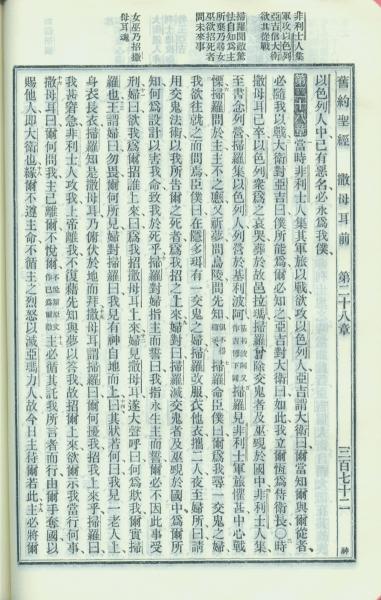 非利士人集
軍攻以色列
亞吉信大衛
欲其從戰
掃羅聞敵驚
怯自知爲主
所棄乃尋女
巫欲
問未來事
女巫乃招撒
母耳魂
舊約聖經 撒母耳前 第二十八章 三百七十二
以色列人中已有惡名必永爲我僕
第二十八章 當時非利士人集其軍旅以戰欲攻以色列人亞吉謂大衛曰爾當知爾與爾從者
必隨我以戰大衛對亞吉曰僕所能爲爾必知之亞吉對大衛曰如此我立爾恆爲侍衛長○時
撒母耳已卒以色列衆爲之哀哭葬於故邑拉瑪掃羅曾除交鬼者及巫覡於國中非利士人集
至書念列營掃羅集以色列人列營於基利波阿掃羅見非利士軍旅懼甚中心戰
慄掃羅問於主主不之應又祈夢問烏陵問先知掃羅命臣僕曰爾爲我尋一交鬼之婦
我欲往就之而問焉臣僕曰在隱多珥有一交鬼之婦掃羅改服衣他衣攜二人夜至婦所曰請
用交鬼法術以我所告爾之死者爲我招之上來婦對曰掃羅滅交鬼者及巫覡於國中爾所
知何爲設計以害我命致我於死乎掃羅對婦指主而誓曰我指永生主而誓爾必不因此事受
刑婦曰欲我爲爾招誰上來曰爲我招撒母耳上來婦見撒母耳遂大聲呼曰何爲欺我爾實掃
羅也王謂婦曰勿畏爾何所見婦對掃羅曰我見有神自地而上曰其狀若何曰我見一老人上
身衣長衣掃羅知是撒母耳乃俯伏於地而拜撒母耳謂掃羅曰爾何擾我招我上來乎掃羅曰
我甚窘急非利士人攻我上帝離我不復藉先知與夢以答我故招爾上來欲爾示我當行何事
撒母耳曰爾何問我主已離爾不悅爾主必循其託我所言者而行由爾手奪國以
賜他人即大衛也緣爾不遵主命不循主之烈怒以滅亞瑪力人故今日主待爾若此主必將爾